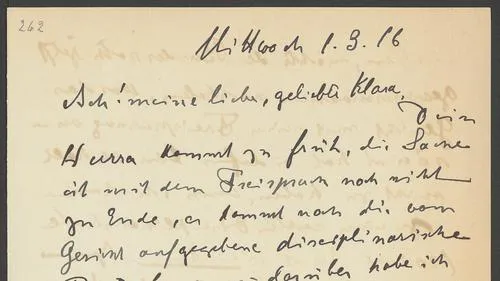 262
Mittwoch 1.3.16
Ach! meine liebe, geliebte Klara,
Dein
Hurra kommt zu früh, die Sache
ist mit dem Freispruch noch nicht
zu Ende, es kommt noch die vom
Gericht aufgegebene disciplinarische
darüber habe ich